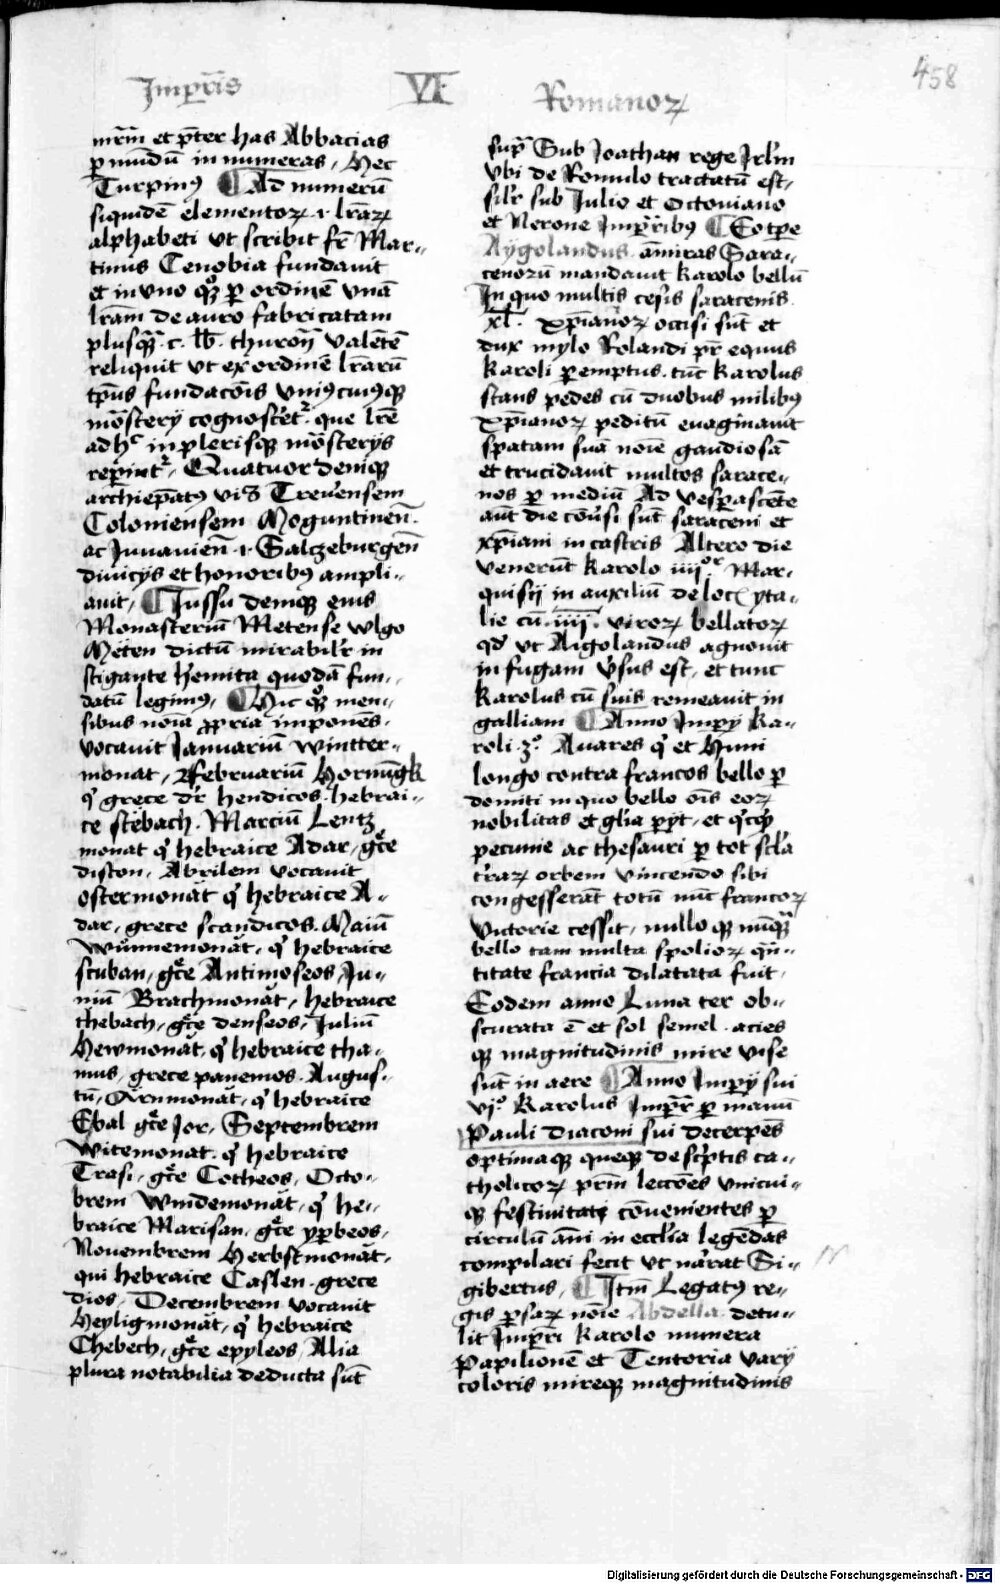 Impr̄is VI Romanoꝝ
458
mr̄im et p̄ter has Abbacias
ꝑ mūdū in numeras, Hec
Turpinꝰ ¶ Ad numerū
siquidē elementoꝝ .i. lr̄aꝝ
alphabeti vt scribit fr̄ Mar-
tinus Cenobia fundauit
et in vno qͦꝫ ꝑ ordinē vnā
lr̄am de auro fabricatam
plusqꝫ .c. lb̄. thuron̄ valētē
reliquit vt ex ordinē lr̄arū
tp̄us fundacōis vniꝰcuiꝰqꝫ
mōstery cognoscet᷑. que lr̄e
adhͨ in plerisqꝫ mōsterys
reꝑiūt᷑, Quatuor deniqꝫ
archiep̄atꝰ viꝫ Treuensem
Coloniensem Moguntinen̄.
ac Juuauien̄ .i. Salczeburgen̄
diuicys et honoribꝰ ampli-
auit, ¶ Jussu deniqꝫ eius
Monasteriū Metense wlgo
Meten dictū mirabilr̄ in
stigante hemita quodā fun-
datū legimꝰ, ¶ Hic qͦꝫ men-
sibus noīa ꝓpria imponēs.
vocauit Januariū wintter-
monat, Februariū Hornūgk
qͥ grece dr̄ hendicos. hebrai-
ce stebach. Marciū Lentz
monat qͥ hebraice Adar, gc̄e
diston, Abrilem vocauit
ostermonāt qͥ hebraice A-
dar, grece scandicos. Maiū
wūnnemonāt, qͥ hebraice
scuban, gc̄e Antimoseos, Ju-
niū Brachmonāt, hebraice
thebach, gc̄e denseos, Juliū
Hewmonāt, qͥ hebraice tha-
mus, grece panemos. Augus-
tū, Arnmonāt, qͥ hebraice
Ebal gc̄e Jor, Septembrem
witemonat. qͥ hebraice
Trasi, gc̄e Cotheos, Octo-
brem windemonāt, qͥ he-
braice Marisan, gc̄e yꝑbeos,
Nouembrem Herbstmonāt,
qui hebraice Caslen. grece
dios, Decembrem vocauit
Heyligmonāt, qͥ hebraice
Chebech, gc̄e epyleos, Alia
plura notabilia deducta sūt
supᷓ Sub Joathan rege Jrl̄m
vbi de Romulo tractatū est,
silr̄ sub Julio et Octouiano
et Nerone Impr̄ibꝰ ¶ Eo tꝑe
Aygolandus. amiras Sara-
cenorū mandauit karolo bellū
In quo multis cesis saracenis.
xl̄. xp̄ianoꝝ occisi sūt et
dux mylo Rolandi pr̄ equus
karoli ꝑemptus. tūc karolus
stans pedes cū duobus milibꝰ
xp̄ianoꝝ peditū euaginauit
spatam suā noīe gaudiosā
et trucidauit multos sarace-
nos ꝑ mediū Ad vesꝑascēte
aūt die cōūsi sūt saraceni et
xp̄iani in castris Altero die
venerūt karolo iiijoͬ Mar-
quisij in auxiliū de loc̄ yta-
lie cū .iiij̄. viroꝝ bellatoꝝ
qd̄ vt Aigolandus agnouit
in fugam ūsus est, et tunc
karolus cū suis remeauit in
galliam ¶ Anno Impy ka-
roli .3ͦ. Auares qͥ et Huni
longo contra francos bello ꝑ
domiti in quo bello oīs eoꝝ
nobilitas et gl̄ia ꝑyt, et qͥcqͥd
pecunie ac thesauri ꝑ tot scl̄a
tr̄aꝝ orbem vincendo sibi
congesserāt totū nūc francoꝝ
victorie cessit, nullo qꝫ nūqᷓ
bello tam multa spolioꝝ qn̄-
titate francia dilatata fuit,
Eodem anno Luna ter ob-
scurata ē et sol semel. acies
qꝫ magnitudinis mire vise
sūt in aere ¶ Anno Impy sui
vjͦ. Karolus Impr̄ ꝑ manū
Pauli diaconi sui decerpēs
optimaqꝫ queqꝫ de scͥptis ca-
tholicoꝝ pr̄m lecc̄oēs vnicui-
qꝫ festiuitati cōuenientes ꝑ
circulū anni in eccl̄ia legēdas
compilari fecit vt nārat Si-
gibertus, ¶ Itm̄ Legatꝰ re-
gis ꝑsaꝝ noīe Abdella detu-
lit Impr̄i karolo munera
Papilionē et Tentoria vary
coloris mireqꝫ magnitudinis
Digitalisierung gefördert durch die Deutsche Forschungsgemeinschaft - DFG